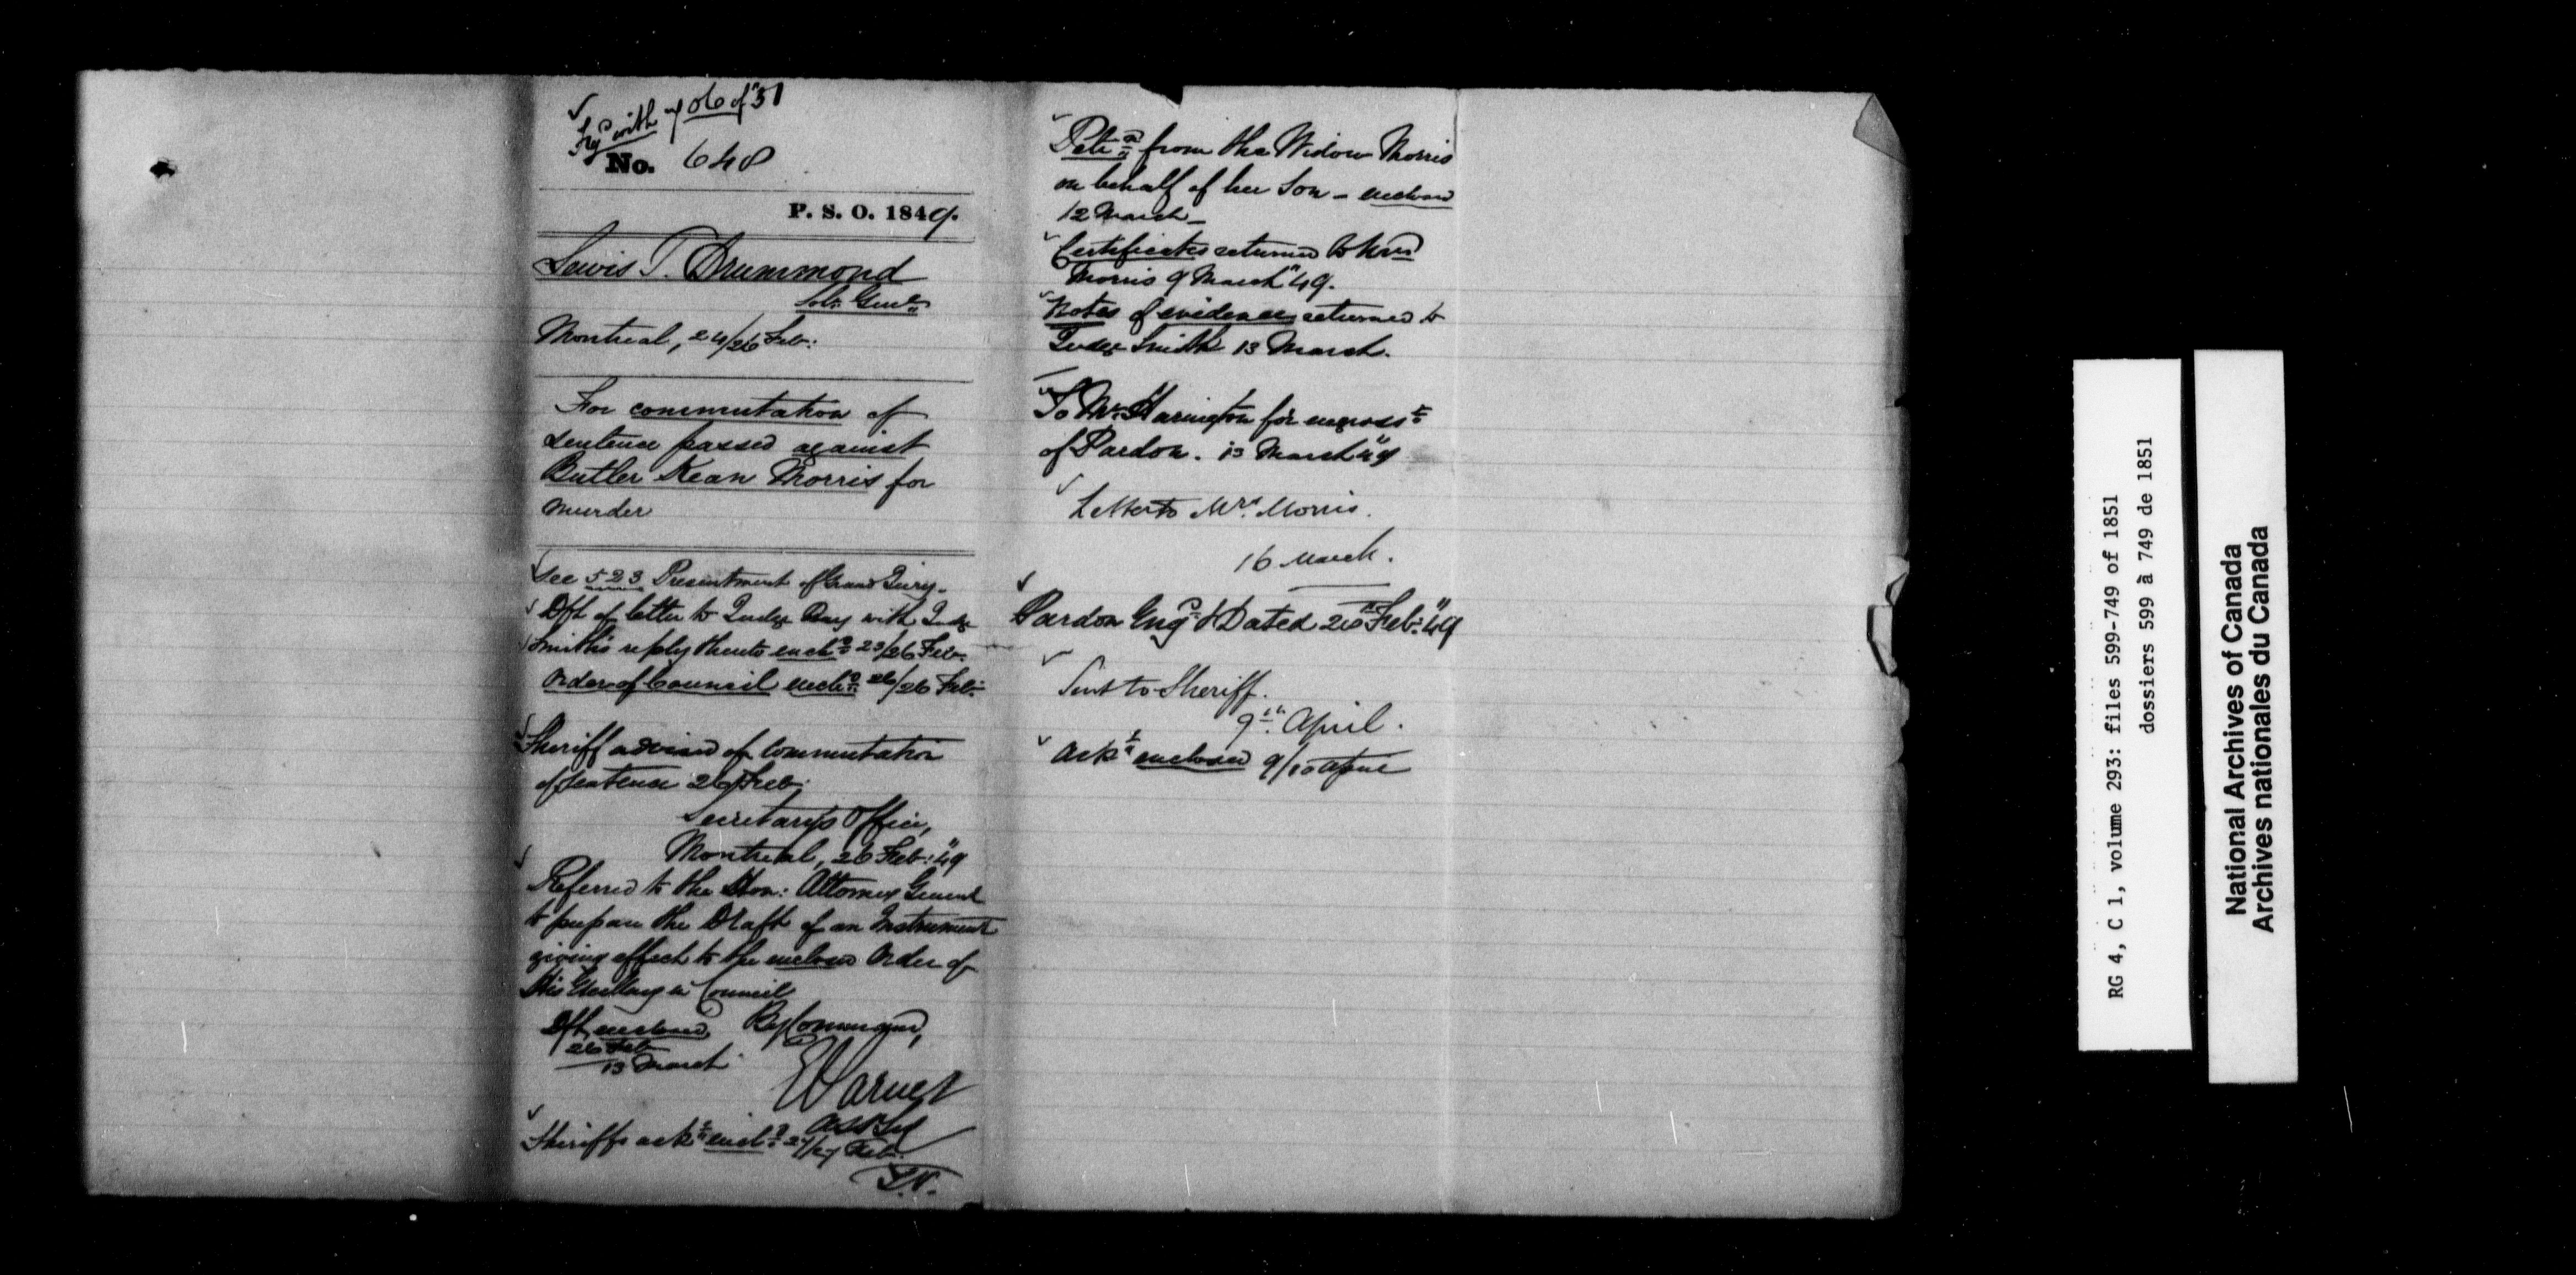 with 706 of "51
No. 648
P. S. O. 1849.
Lewis T. Drummond
Solr. Genl.
Montreal, 24/26 Feb:
For commutation of
sentence passed against
Butler Kean Morris for
murder
See 523 Presentment of Grand Jury.
Dft of letter to Judge Day with Judge
Smith's reply thereto encld. 23/26 Feb.
Order of Council encld. 26/26 Feb:
Sheriff advised of Commutation
of sentence 26 Feb.
Secretary's Office,
Montreal, 26 Feb: "49
Referred to the Hon: Attorney General
to prepare the Draft of an Instrument
giving effect to the enclosed Order of
His Excellency in Council
Dft enclosed By Command,
26 Feb
13 March
Asst Sey
Sheriffs ackt. encld. 27/27 Feb.
Petn. from the Widow Morris
on behalf of her Son - enclosed
12 March -
Certificates returned to Mrs
Morris 9 March "49.
Notes of evidence returned to
Judge Smith 13 March.
To Mr. Harington for engrosst.
of Pardon. 13 March "49
Letter to Mrs. Morris.
16 March.
Pardon Engd. & Dated 26 Feb: "49
Sent to Sheriff.
9th April.
Ackt. enclosed 9/10 April
RG 4, C 1, volume 293: files 599-749 of 1851
dossiers 599 à 749 de 1851
National Archives of Canada
Archives nationales du Canada